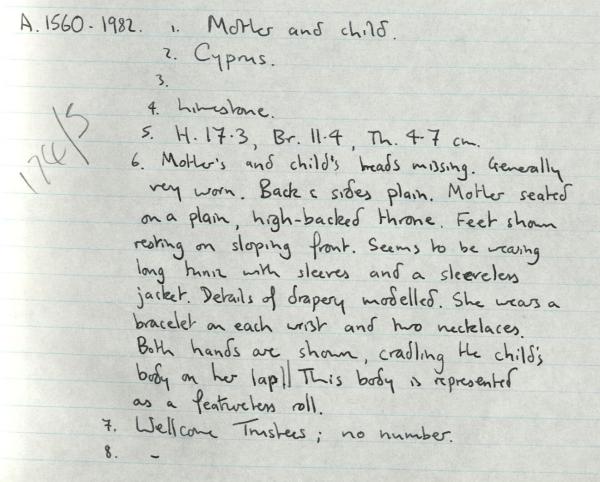 A.1560-1982. 1. Mother and child.
2. Cyprus.
3.
4. Limestone.
174/5
5. H. 17.3, Br. 11.4, Th. 4.7 cm.
6. Mother's and child's heads missing. Generally
very worn. Back & sides plain. Mother seated
on a plain, high-backed throne. Feet shown
resting on sloping front. Seems to be wearing
long tunic with sleeves and a sleeveless
jacket. Details of drapery modelled. She wears a
bracelet on each wrist and two necklaces.
Both hands are shown, cradling the child's
body on her lap|| This body is represented
as a featureless roll.
7. Wellcome Trustees; no number.
8. -